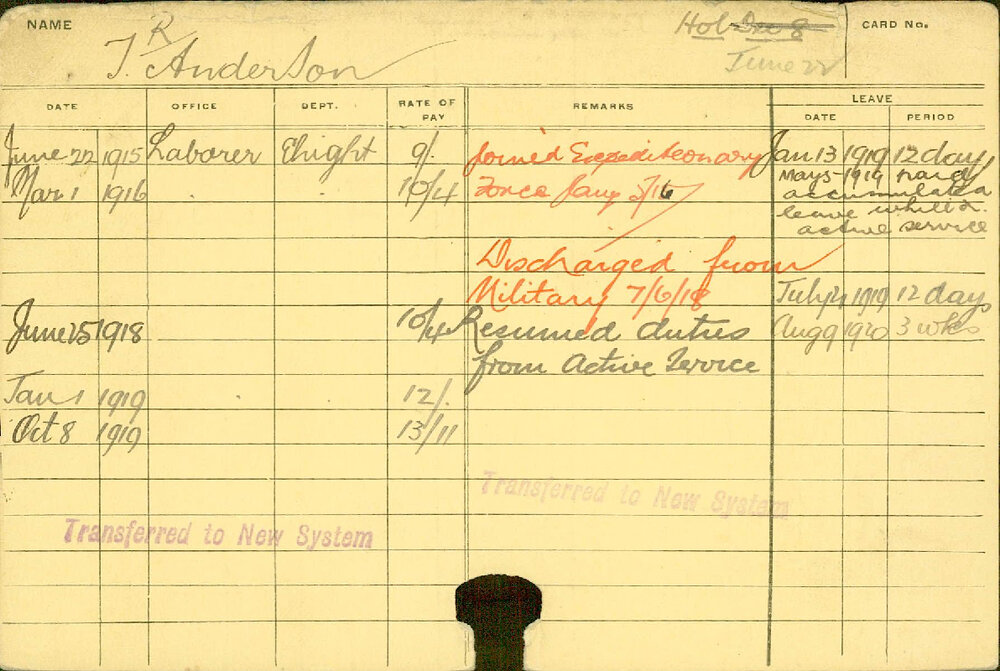 NAME T. R Anderson Hol Dec 8 CARD No.
June 22
DATE OFFICE DEPT. RATE OF PAY REMARKS LEAVE
DATE PERIOD
June 22 1915 Laborer 9/. Joined Expeditionary Jan 13 1919 12 days
Mar 1 1916 10/4 Force Jany 3/16 May 5 1919
accumulated
leave whilst
active service
Discharged from
Military 7/6/18 July 21 1919 12 days
June 25 1918 10/4 Resumed duties Aug 9 1920 3 wks
from Active Service
Jan 1 1919 12/.
Oct 8 1919 13/11
Transferred to New System
Transferred to New System